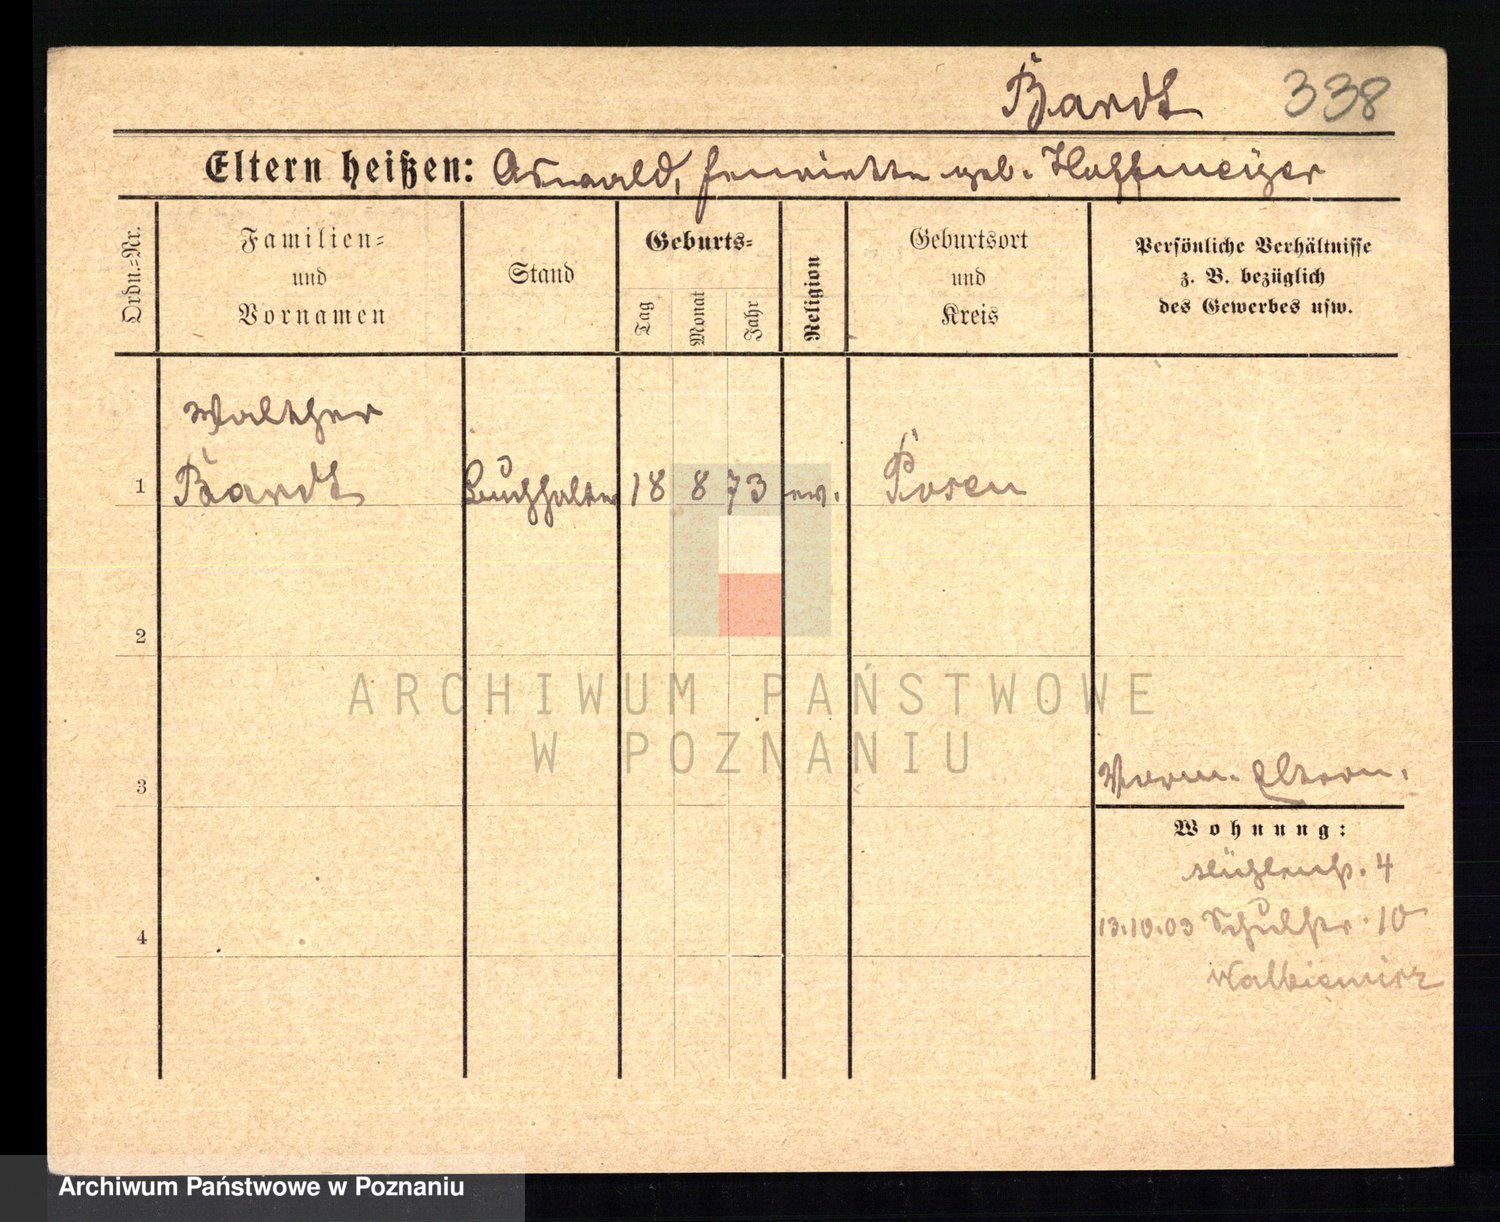 Bardt 338
Eltern heißen: Oswald, Henriette geb. Hoffmeyer
Ordn.-Nr.
Familien-
und
Vornamen
Stand
Geburts-
Tag
Monat
Jahr
Religion
Geburtsort
und
Kreis
Persönliche Verhältnisse
z. B. bezüglich
des Gewerbes usw.
Walther
1 Bardt Buchhalter 18 8 73 ev. Posen
2
ARCHIWUM PAŃSTWOWE
W POZNANIU
3
Eltern.
Wohnung:
Mühlenstr. 4
4
13.10.03 Schulstr. 10
Archiwum Państwowe w Poznaniu